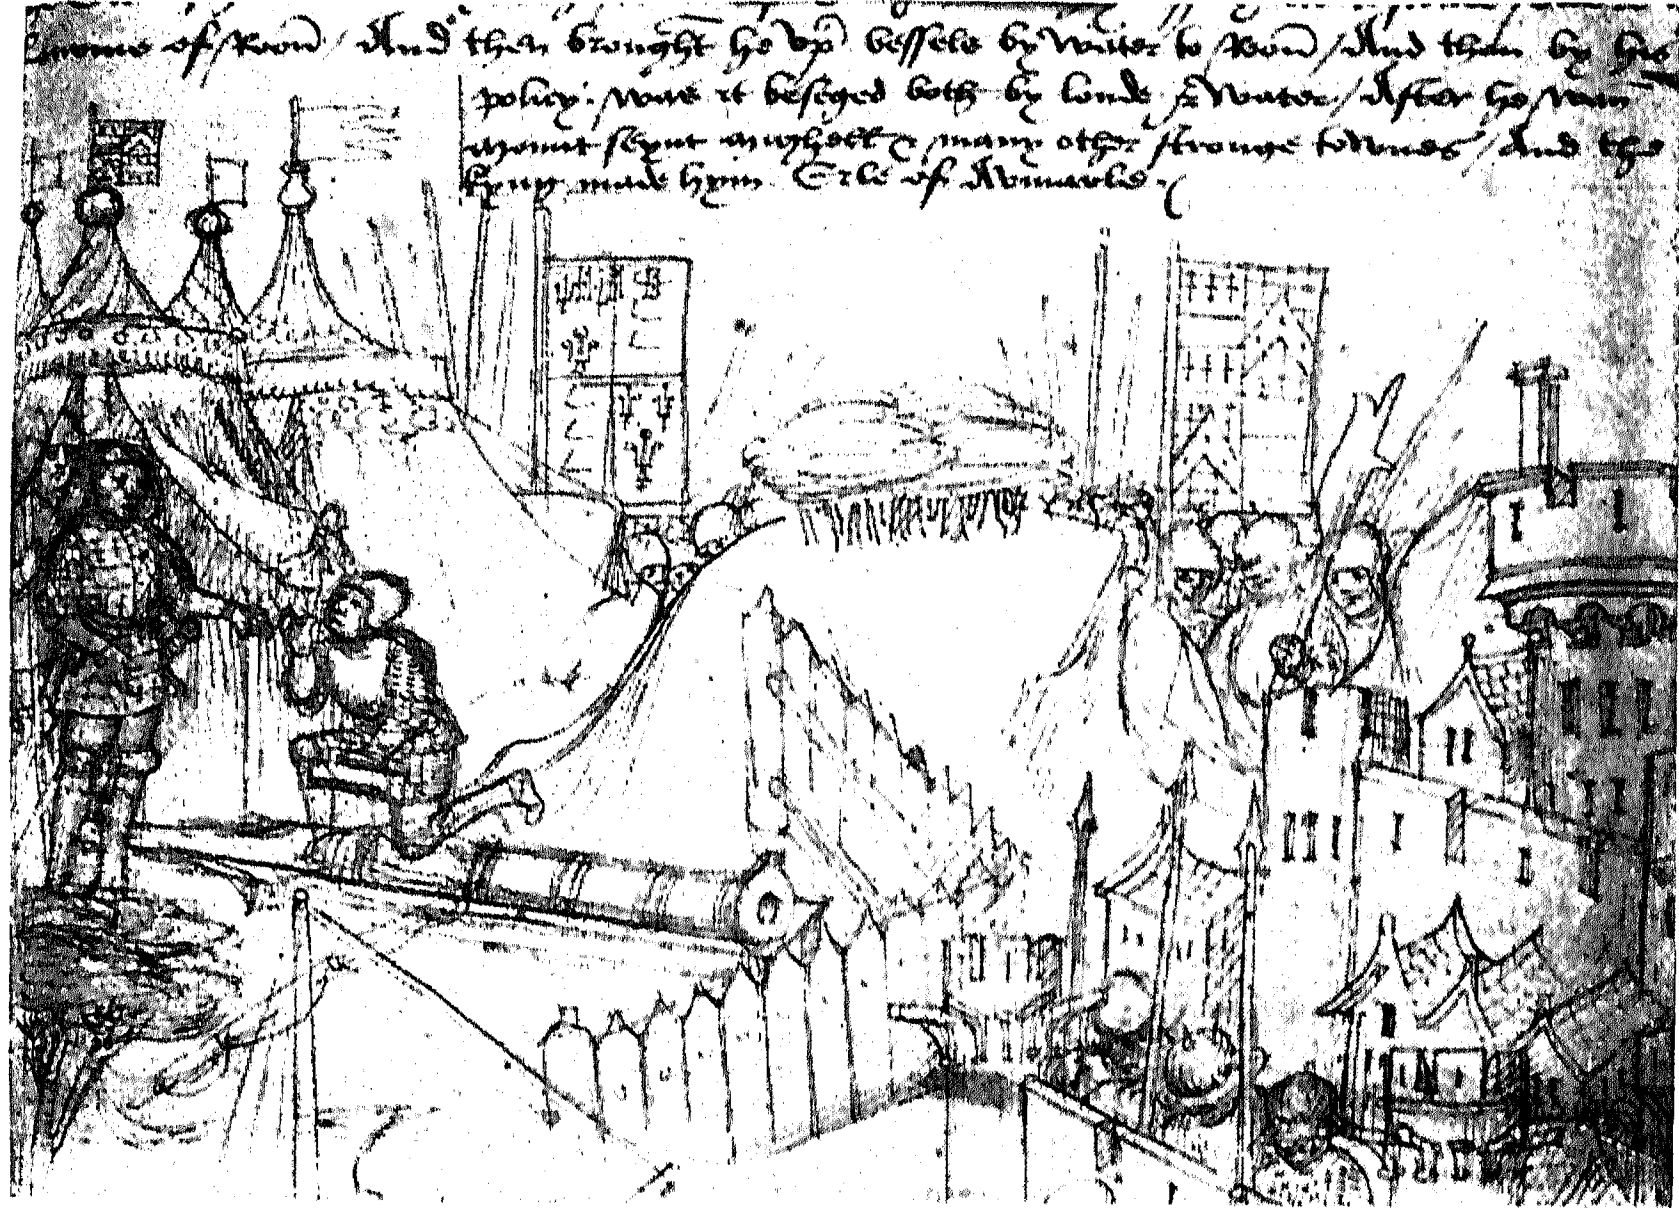 of Roon / And then brought he vp vessels by water to Roon / And then by his
policy was it beseged both by londe & water / After he wan
mount seynt mighell & many other stronge townes / And the
kyng made hym Erle of Awmarle